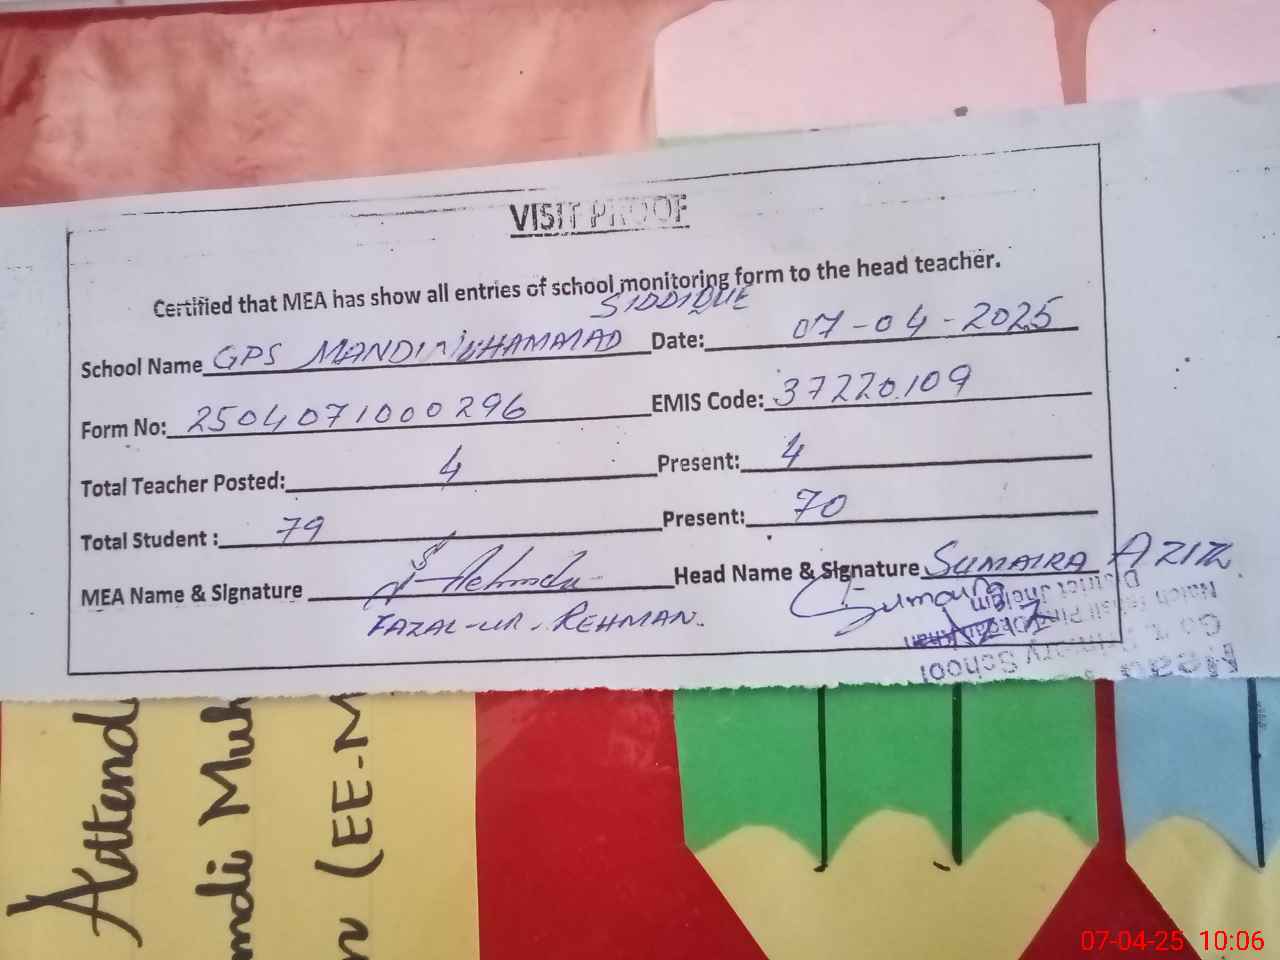 VISIT PROOF
Certified that MEA has show all entries of school monitoring form to the head teacher.
SIDDIQUE
School Name GPS MANDI MUHAMMAD Date: 07-04-2025
Form No: 2504071000296 EMIS Code: 37220109
Total Teacher Posted: 4 Present: 4
Total Student : 79 Present: 70
MEA Name & Signature Head Name & Signature SUMAIRA AZIZ
FAZAL-UR-REHMAN. Sumaira
Aziz
District Jhelum
Primary School
Head
Attend
ndi Muh
(EE-M
07-04-25 10:06